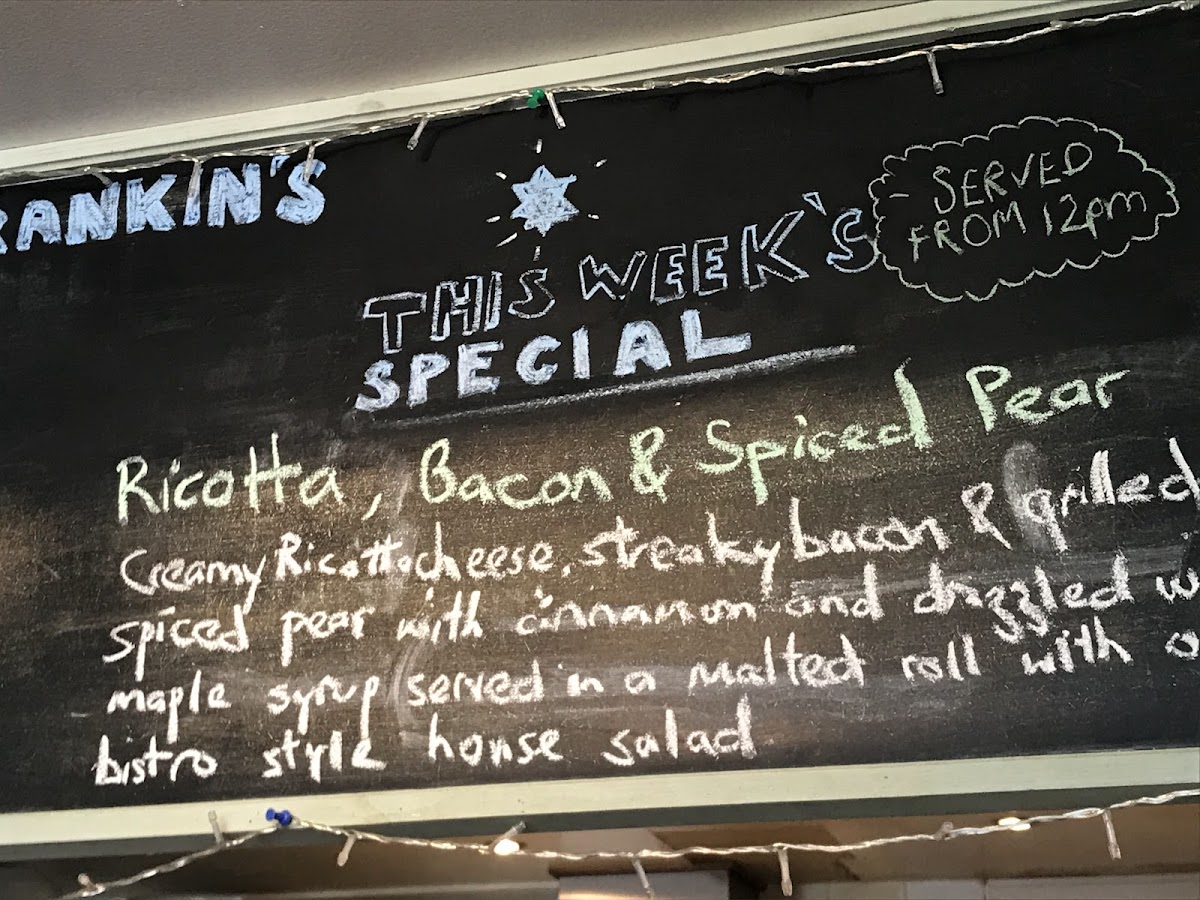 RANKIN'S
THIS WEEK'S
SPECIAL
SERVED
FROM 12pm
Ricotta, Bacon & Spiced Pear
Creamy Ricotta cheese, streaky bacon & grilled
spiced pear with cinnamon and drizzled
maple syrup served in a malted roll with
bistro style house salad